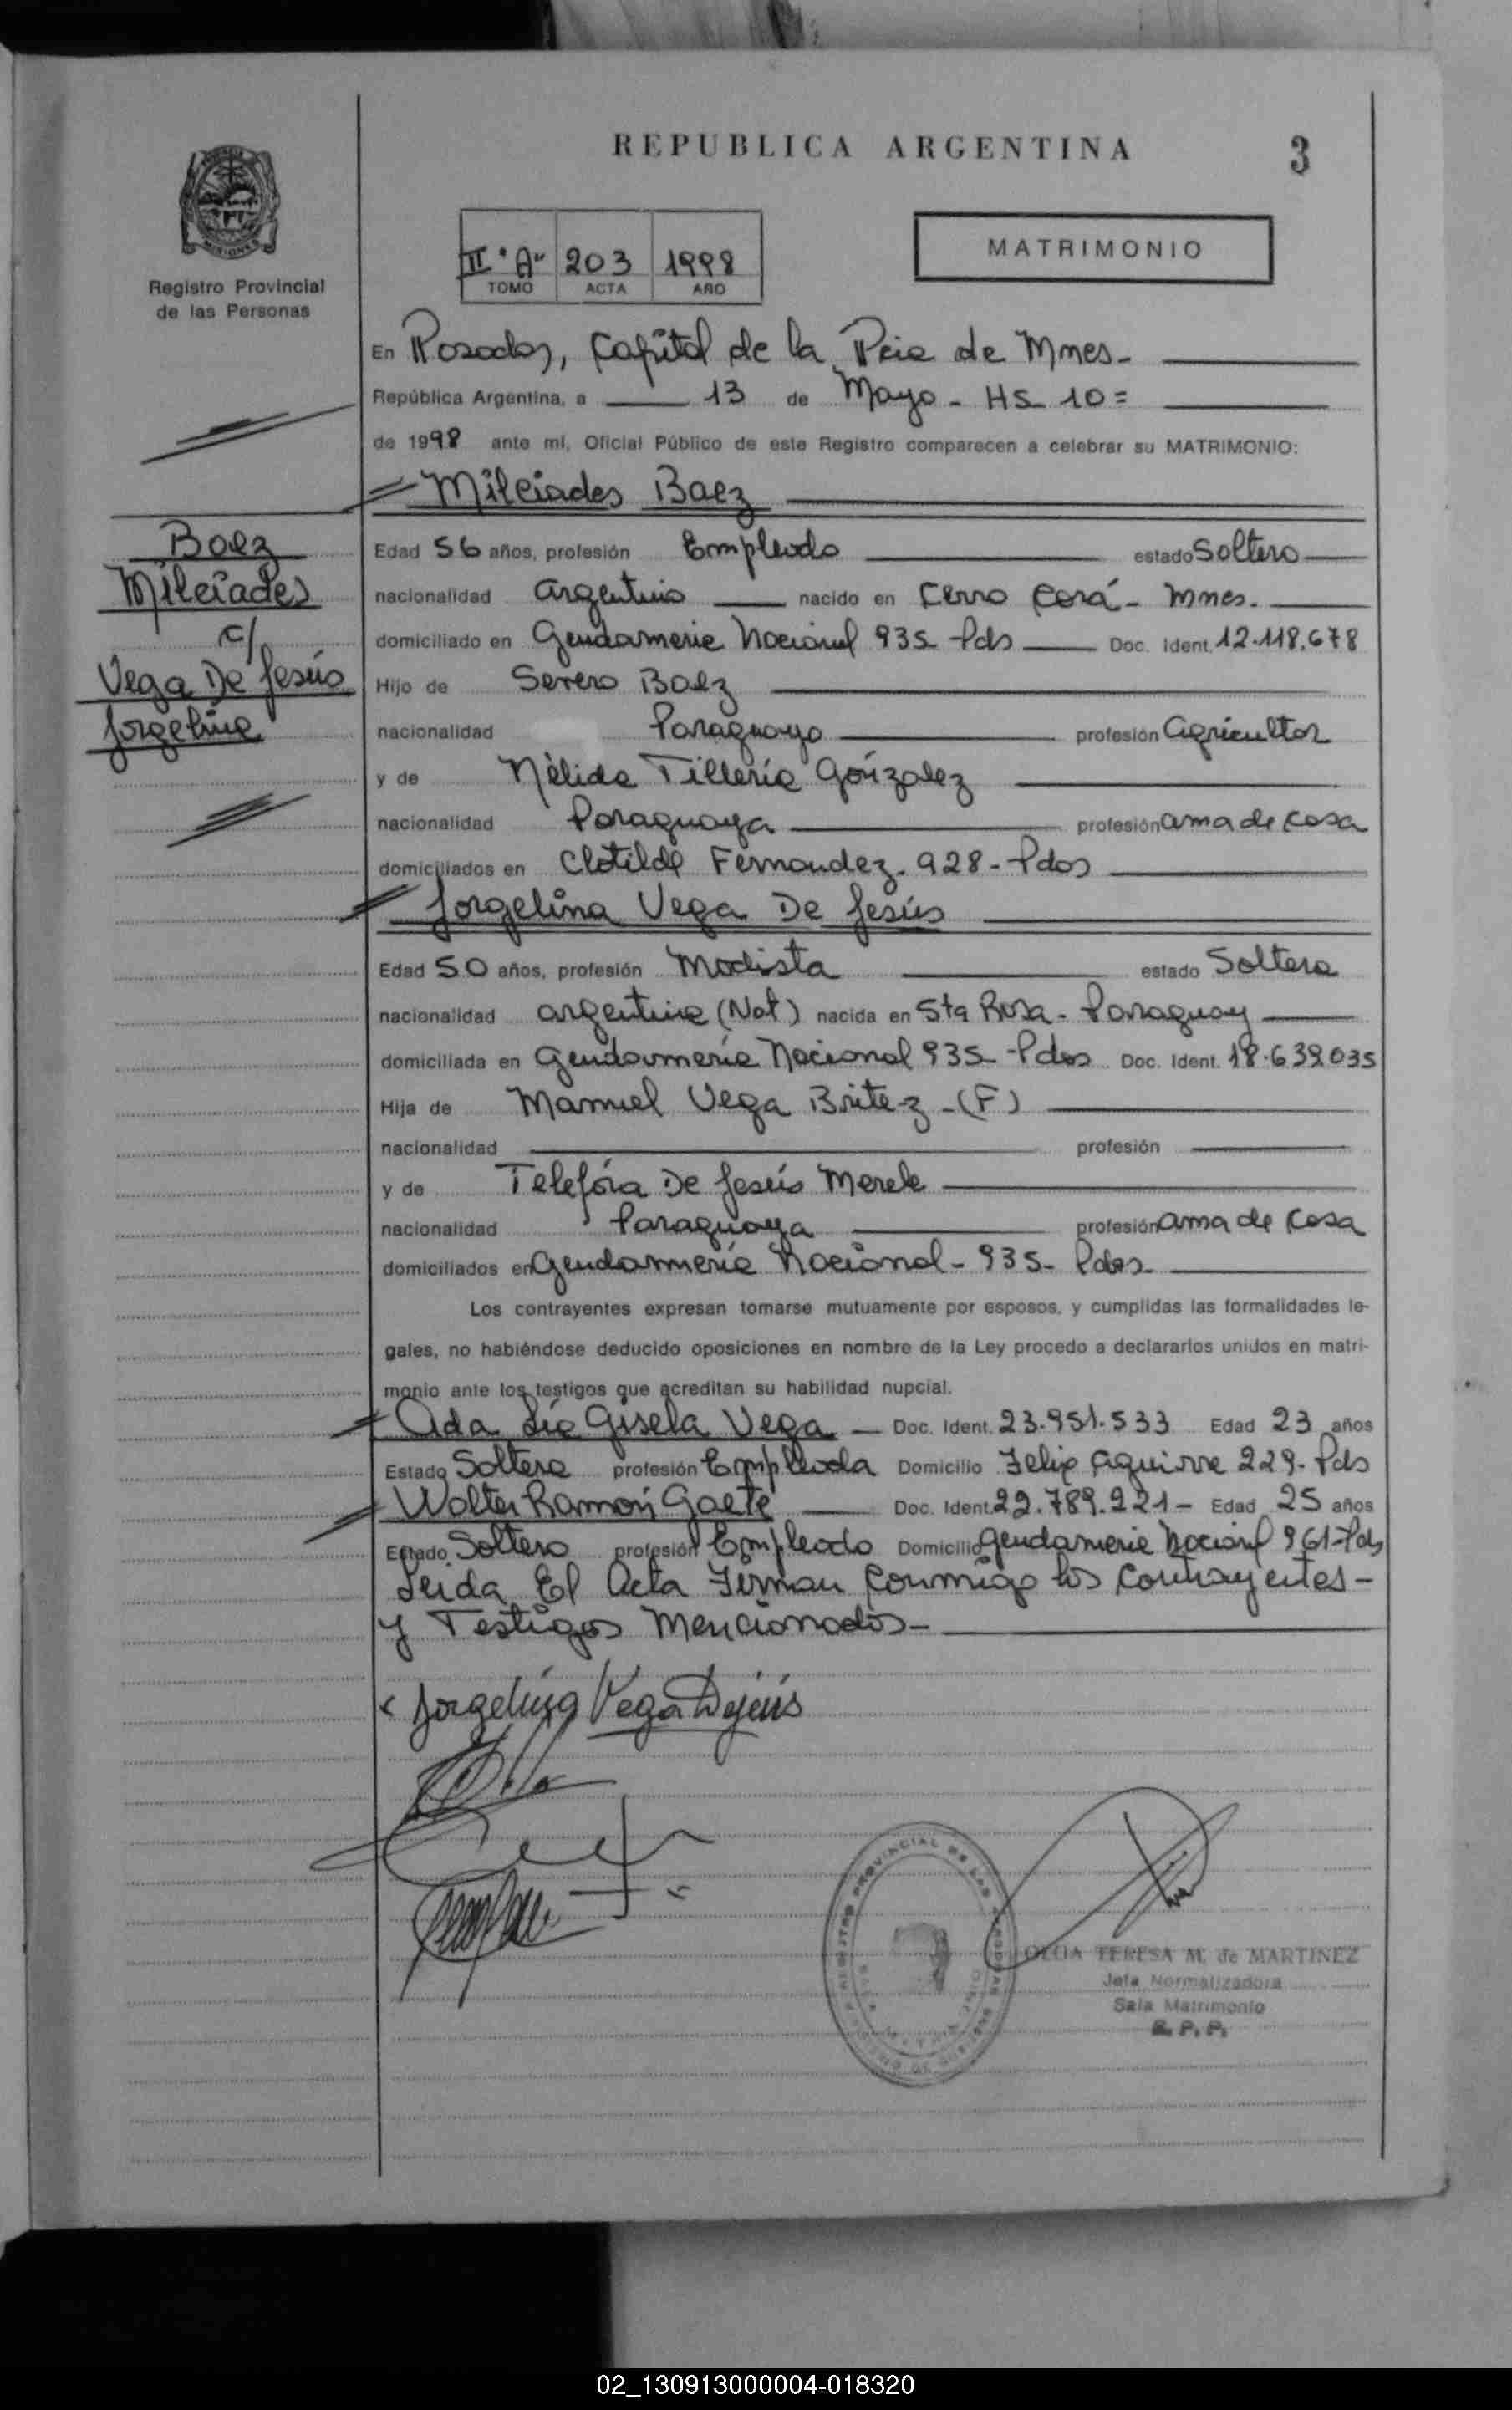 REPUBLICA ARGENTINA
3
Registro Provincial
de las Personas
II° "A" 203 1998
TOMO ACTA AÑO
MATRIMONIO
En Posadas, Capital de la Pcia de Mnes-
República Argentina, a 13 de Mayo - HS 10=
de 1998 ante mí, Oficial Público de este Registro comparecen a celebrar su MATRIMONIO:
Milciades Baez
Baez
Milciades
c/
Vega De Jesús
Jorgelina
Edad 56 años, profesión Empleado estado Soltero
nacionalidad argentino nacido en Cerro Corá - Mnes.
domiciliado en Gendarmeria Nacional 935 - Pds Doc. Ident. 12.118.678
Hijo de Severo Baez
nacionalidad Paraguayo profesión agricultor
y de Nélida Tillería González
nacionalidad Paraguaya profesión ama de casa
domiciliados en Clotilde Fernandez - 928 - Pdos
Jorgelina Vega De Jesús
Edad 50 años, profesión Modista estado Soltera
nacionalidad argentina (Nat) nacida en Sta Rosa - Paraguay
domiciliada en Gendarmería Nacional 935 - Pdas Doc. Ident. 18.639.035
Hija de Manuel Vega Britez - (F)
nacionalidad profesión
y de Telefóra De Jesús Merele
nacionalidad Paraguaya profesión ama de casa
domiciliados en Gendarmería Nacional - 935 - Pdas
Los contrayentes expresan tomarse mutuamente por esposos, y cumplidas las formalidades le-
gales, no habiéndose deducido oposiciones en nombre de la Ley procedo a declararlos unidos en matri-
monio ante los testigos que acreditan su habilidad nupcial.
Ada Lía Gisela Vega - Doc. Ident. 23.951.533 Edad 23 años
Estado Soltera profesión Empleada Domicilio Felix Aguirre 229 - Pds
Walter Ramón Gaete Doc. Ident. 22.789.221 - Edad 25 años
Estado Soltero profesión Empleado Domicilio Gendarmeria Nacional 961 - Pds
Leida El Acta Firman Conmigo los Contrayentes -
y Testigos Mencionados -
Jorgelina Vega Dejesús
OLGA TERESA M. de MARTINEZ
Jefa Normalizadora
Sala Matrimonio
R. P. P.
02_130913000004-018320